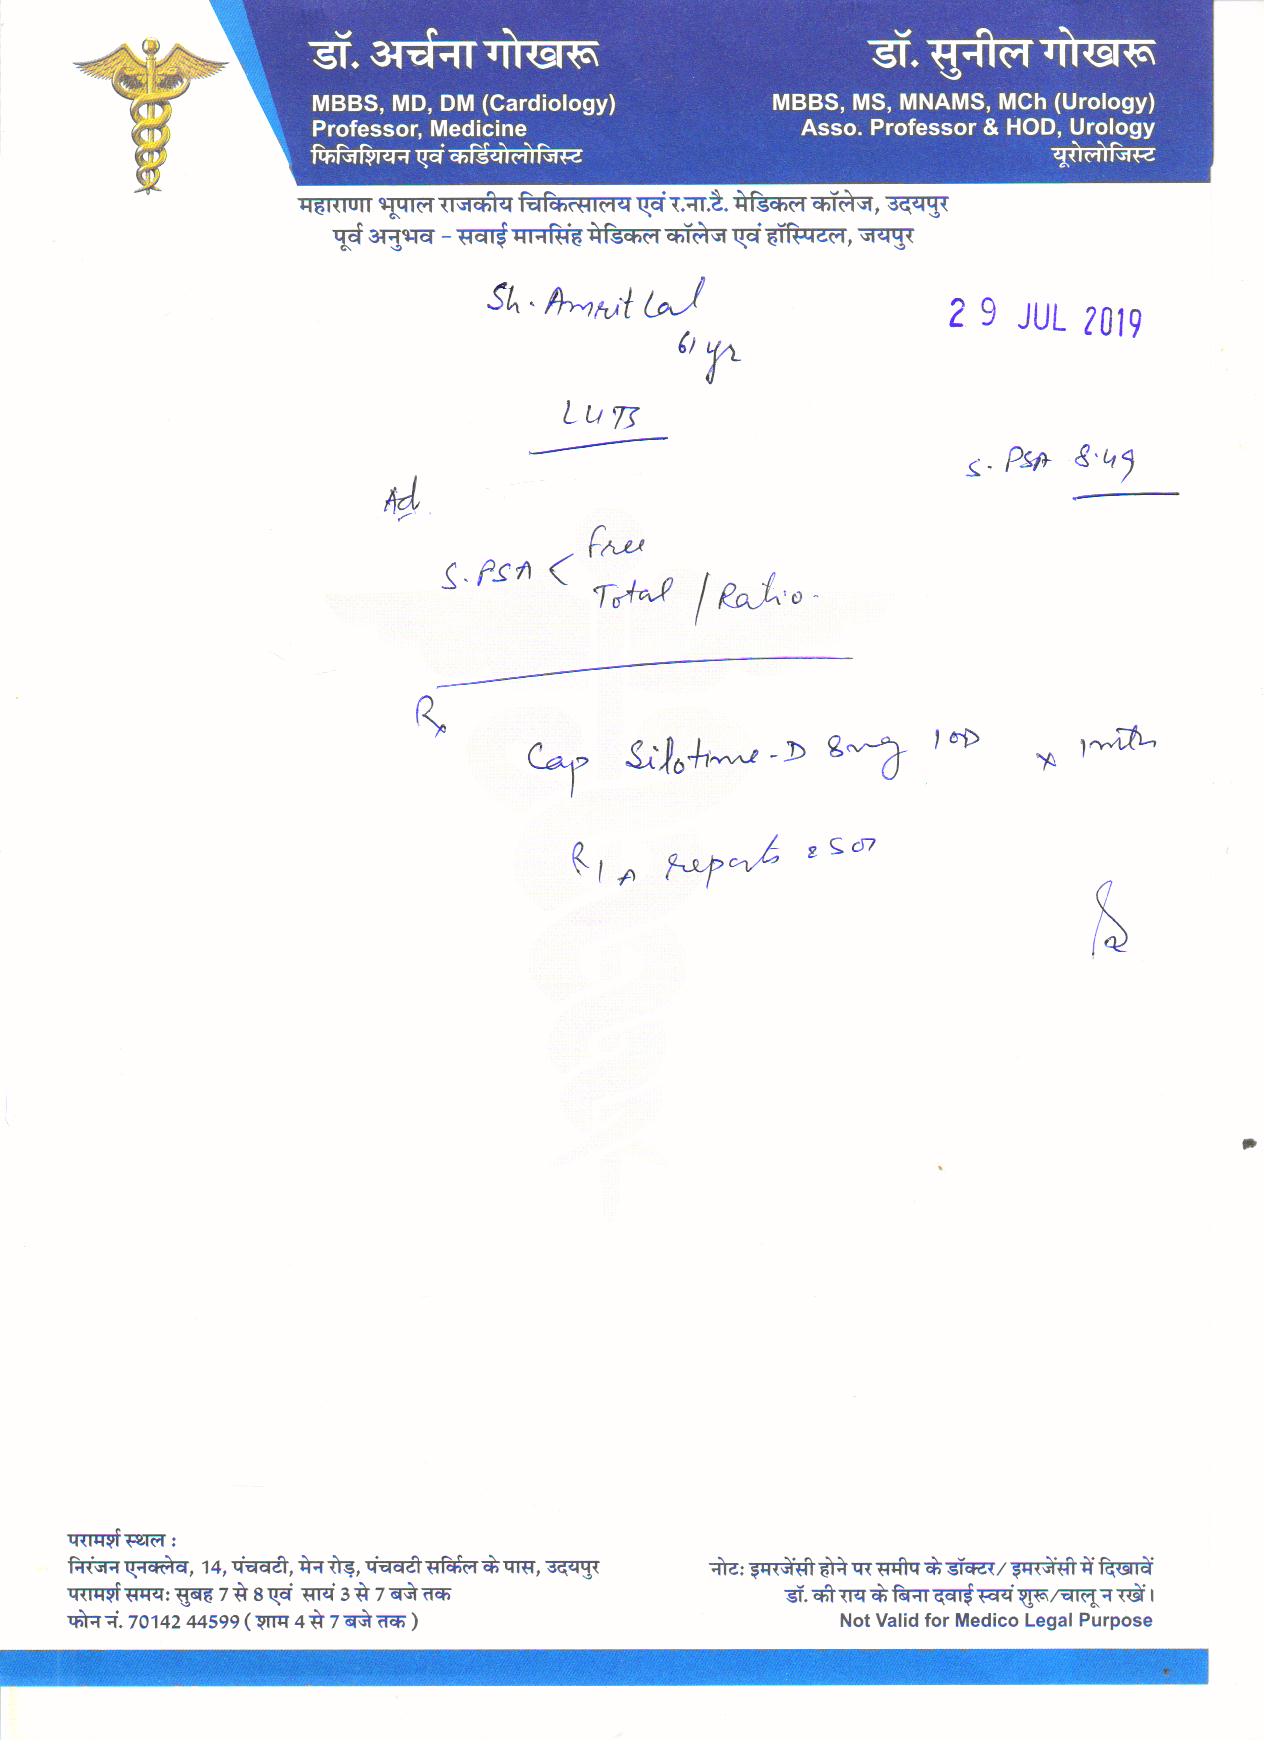 डॉ. अर्चना गोखरू
MBBS, MD, DM (Cardiology)
Professor, Medicine
फिजिशियन एवं कर्डियोलोजिस्ट
डॉ. सुनील गोखरू
MBBS, MS, MNAMS, MCh (Urology)
Asso. Professor & HOD, Urology
यूरोलोजिस्ट
महाराणा भूपाल राजकीय चिकित्सालय एवं र.ना.टै. मेडिकल कॉलेज, उदयपुर
पूर्व अनुभव - सवाई मानसिंह मेडिकल कॉलेज एवं हॉस्पिटल, जयपुर
Sh. Amrit Lal
29 JUL 2019
61 yr
LUTS
S. PSA 8.49
Ad
S. PSA < Free
Total / Ratio
Rx
Cap Silotime-D 8mg 1 OD x 1 mth
R/A reports
परामर्श स्थल :
निरंजन एनक्लेव, 14, पंचवटी, मेन रोड़, पंचवटी सर्किल के पास, उदयपुर
परामर्श समय: सुबह 7 से 8 एवं सायं 3 से 7 बजे तक
फोन नं. 70142 44599 ( शाम 4 से 7 बजे तक )
नोट: इमरजेंसी होने पर समीप के डॉक्टर/ इमरजेंसी में दिखावें
डॉ. की राय के बिना दवाई स्वयं शुरू/चालू न रखें।
Not Valid for Medico Legal Purpose